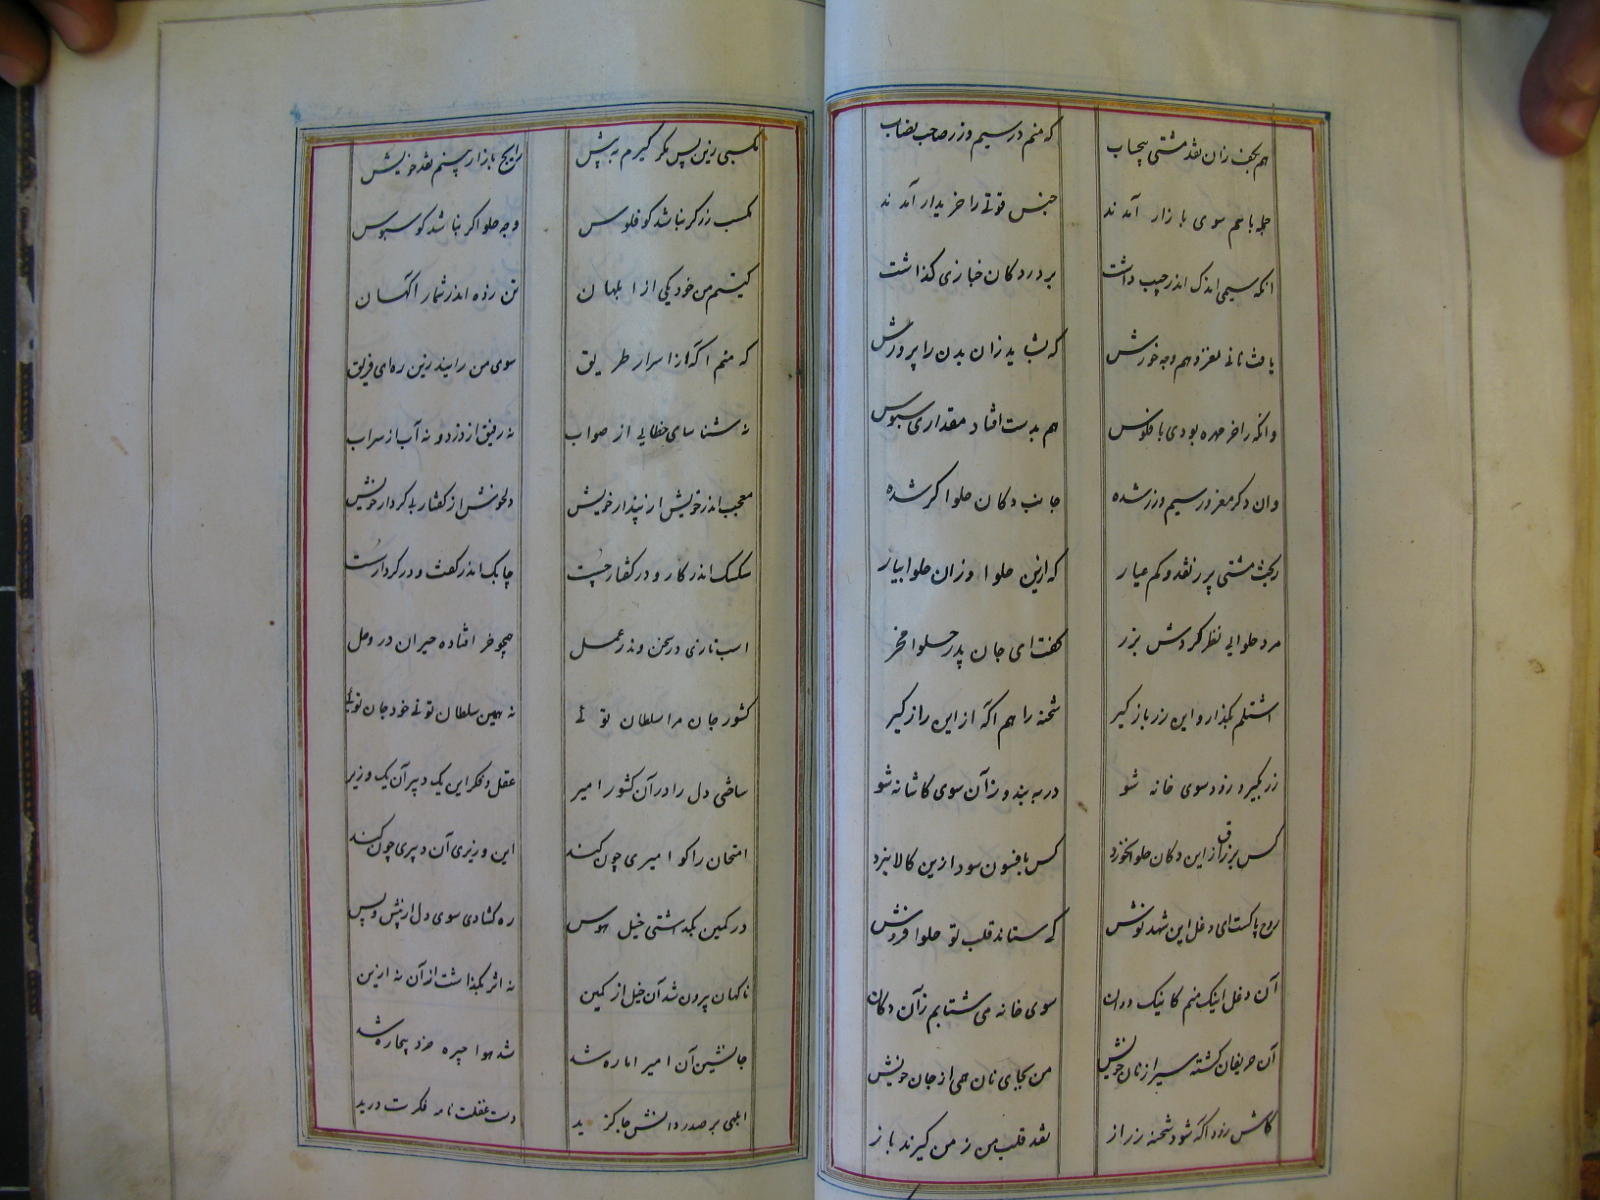 هم بکف زان نقد مشتی بیحساب که منم در سیم و زر صاحب نصاب
جمله با هم سوی بازار آمدند جنس قوتی را خریدار آمدند
آنکه سیمی اندک اندر جیب داشت بر در دکان خبازی گذاشت
یافت نانی نغز و هم وجه خورش که شاید زان بدن را پرورش
وانکه را خر مهره بودی یا فلوس هم بدست افتاد مقداری سبوس
وان دگر مغرور سیم و زر شده جانب دکان حلواگر شده
ریخت مشتی پر ز نقد کم عیار که ازین حلوا وزان حلوا بیار
مرد حلوایی نظر کردش بزر گفت ای جان پدر حلوا مخر
اشتلم بگذار و این زر باز گیر شحنه را هم آگه از این راز گیر
زر بگیر و زود سوی خانه شو در به بند و زآن سوی کاشانه شو
کس بزرق از این دکان حلوا نخورد کس بافسون سود ازین کالا نبرد
روح پاکست ای دغل این شهد نوش که ستاند قلب تو حلوا فروش
آن دغل اینک منم کاینک دوان سوی خانه می شتابم زآن دکان
آن حریفان گشته سیر از نان خویش من بجای نان همی از جان خویش
کاش زود آگه شود شحنه ز راز نقد قلب من ز من گیرند باز
کسبی زین پس مگر گیرم به پیش رایج بازار بینم نقد خویش
کسب زر گر نباشد کو فلوس وجه حلوا گر نباشد کو سبوس
کیستم من خود یکی از ابلهان تن زده اندر شمار آگهان
که منم آگه از اسرار طریق سوی من رانید زین ره ای فریق
نه شناسای خطایی از صواب نه رفیق از دزد و نه آب از سراب
معجب اندر خویش از پندار خویش دلخوش از گفتار بی کردار خویش
سکسک اندر کار و در گفتار چست چابک اندر گفت و در کردار سست
اسب تازی در سخن وندر عمل همچو خر افتاده حیران در وحل
کشور جان مرا سلطان تویی نه همین سلطان تویی خود جان تویی
ساختی دل را در آن کشور امیر عقل و فکر این یک دبیر آن یک وزیر
امتحان را کو امیری چون کند این وزیری آن دبیری چون کند
در کمین بگذشتی خیل هوس ره گشادی سوی دل از پیش و پس
ناگهان بیرون شد آن خیل از کمین نه اثر بگذاشت از آن نه ازین
جانشین آن امیر اماره شد شد هوا چیره خرد بیچاره شد
ابلهی بر صدر دانش جا گزید دست غفلت نامه فکرت درید